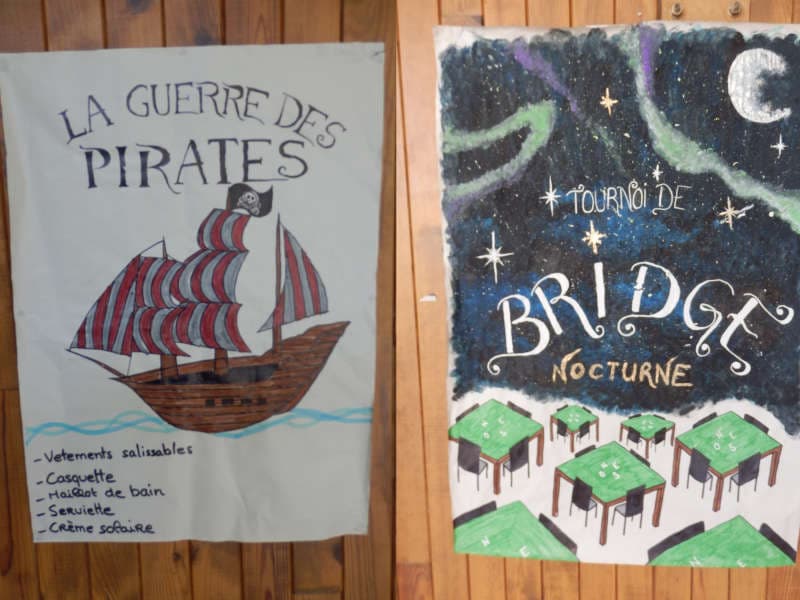 LA GUERRE DES
PIRATES
- Vetements salissables
- Casquette
- Maillot de bain
- Serviette
- Crème solaire
TOURNOI DE
BRIDGE
NOCTURNE
N
O
S
N
E
O
S
N
E
L
O
S
N
E